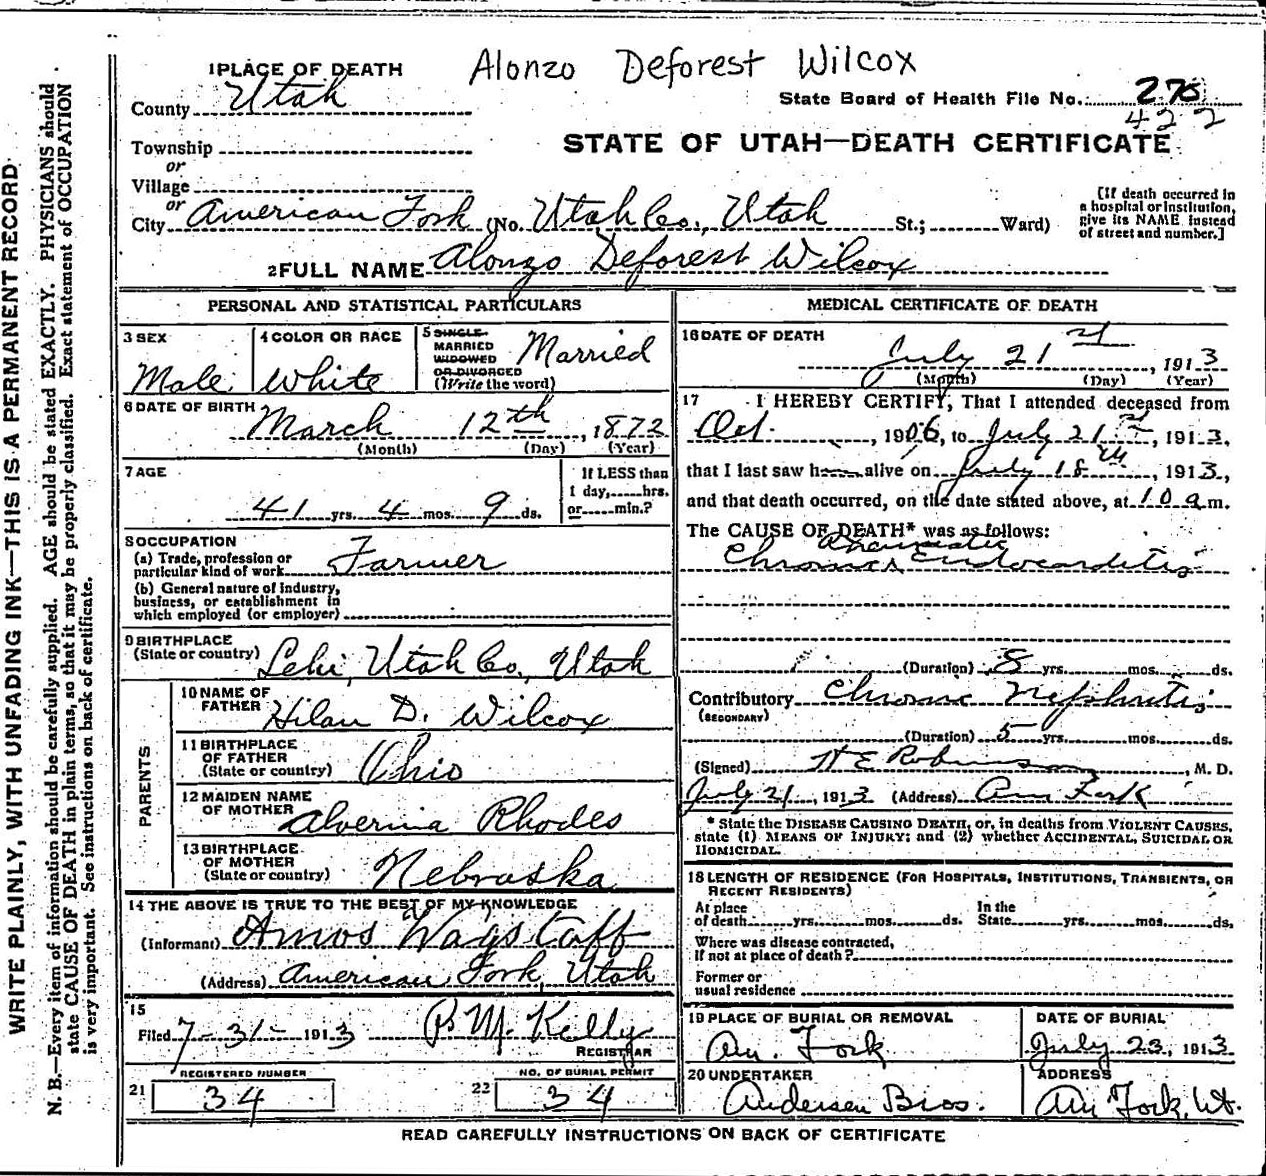 Alonzo Deforest Wilcox
1 PLACE OF DEATH
County Utah
State Board of Health File No. 270
422
Township
or
Village
or
City American Fork (No. Utah Co., Utah St.; Ward)
STATE OF UTAH—DEATH CERTIFICATE
[If death occurred in
a hospital or institution,
give its NAME instead
of street and number.]
2 FULL NAME Alonzo Deforest Wilcox
PERSONAL AND STATISTICAL PARTICULARS
3 SEX
Male
4 COLOR OR RACE
White
5 SINGLE
MARRIED
WIDOWED
OR DIVORCED
(Write the word)
Married
6 DATE OF BIRTH
March 12th, 1872
(Month) (Day) (Year)
7 AGE
41 yrs. 4 mos. 9 ds.
If LESS than
1 day, hrs.
or min.?
8 OCCUPATION
(a) Trade, profession or
particular kind of work Farmer
(b) General nature of industry,
business, or establishment in
which employed (or employer)
9 BIRTHPLACE
(State or country) Lehi, Utah Co., Utah
PARENTS
10 NAME OF
FATHER Hilan D. Wilcox
11 BIRTHPLACE
OF FATHER
(State or country) Ohio
12 MAIDEN NAME
OF MOTHER Alverina Rhodes
13 BIRTHPLACE
OF MOTHER
(State or country) Nebraska
14 THE ABOVE IS TRUE TO THE BEST OF MY KNOWLEDGE
(Informant) Amos Wagstaff
(Address) American Fork, Utah
15
Filed 7-31- 1913 P. M. Kelly
REGISTRAR
REGISTERED NUMBER
21 34
NO. OF BURIAL PERMIT
22 34
MEDICAL CERTIFICATE OF DEATH
16 DATE OF DEATH
July 21st, 1913
(Month) (Day) (Year)
17 I HEREBY CERTIFY, That I attended deceased from
Oct. , 1906, to July 21st, 1913,
that I last saw h alive on July 18th, 1913,
and that death occurred, on the date stated above, at 10 a.m.
The CAUSE OF DEATH* was as follows:
Rheumatic
Chronic Endocarditis
(Duration) 8 yrs. mos. ds.
Contributory Chronic Nephritis
(SECONDARY)
(Duration) 5 yrs. mos. ds.
(Signed) H E Robinson, M. D.
July 21, 1913 (Address) Am Fork
* State the DISEASE CAUSING DEATH, or, in deaths from VIOLENT CAUSES,
state (1) MEANS OF INJURY; and (2) whether ACCIDENTAL, SUICIDAL OR
HOMICIDAL.
18 LENGTH OF RESIDENCE (FOR HOSPITALS, INSTITUTIONS, TRANSIENTS, OR
RECENT RESIDENTS)
At place
of death yrs. mos. ds.
In the
State yrs. mos. ds.
Where was disease contracted,
if not at place of death?
Former or
usual residence
19 PLACE OF BURIAL OR REMOVAL
Am. Fork
DATE OF BURIAL
July 23, 1913
20 UNDERTAKER
Andersen Bros.
ADDRESS
Am Fork, Ut.
READ CAREFULLY INSTRUCTIONS ON BACK OF CERTIFICATE
WRITE PLAINLY, WITH UNFADING INK—THIS IS A PERMANENT RECORD
N. B.—Every item of information should be carefully supplied. AGE should be stated EXACTLY. PHYSICIANS should
state CAUSE OF DEATH in plain terms, so that it may be properly classified. Exact statement of OCCUPATION
is very important. See instructions on back of certificate.